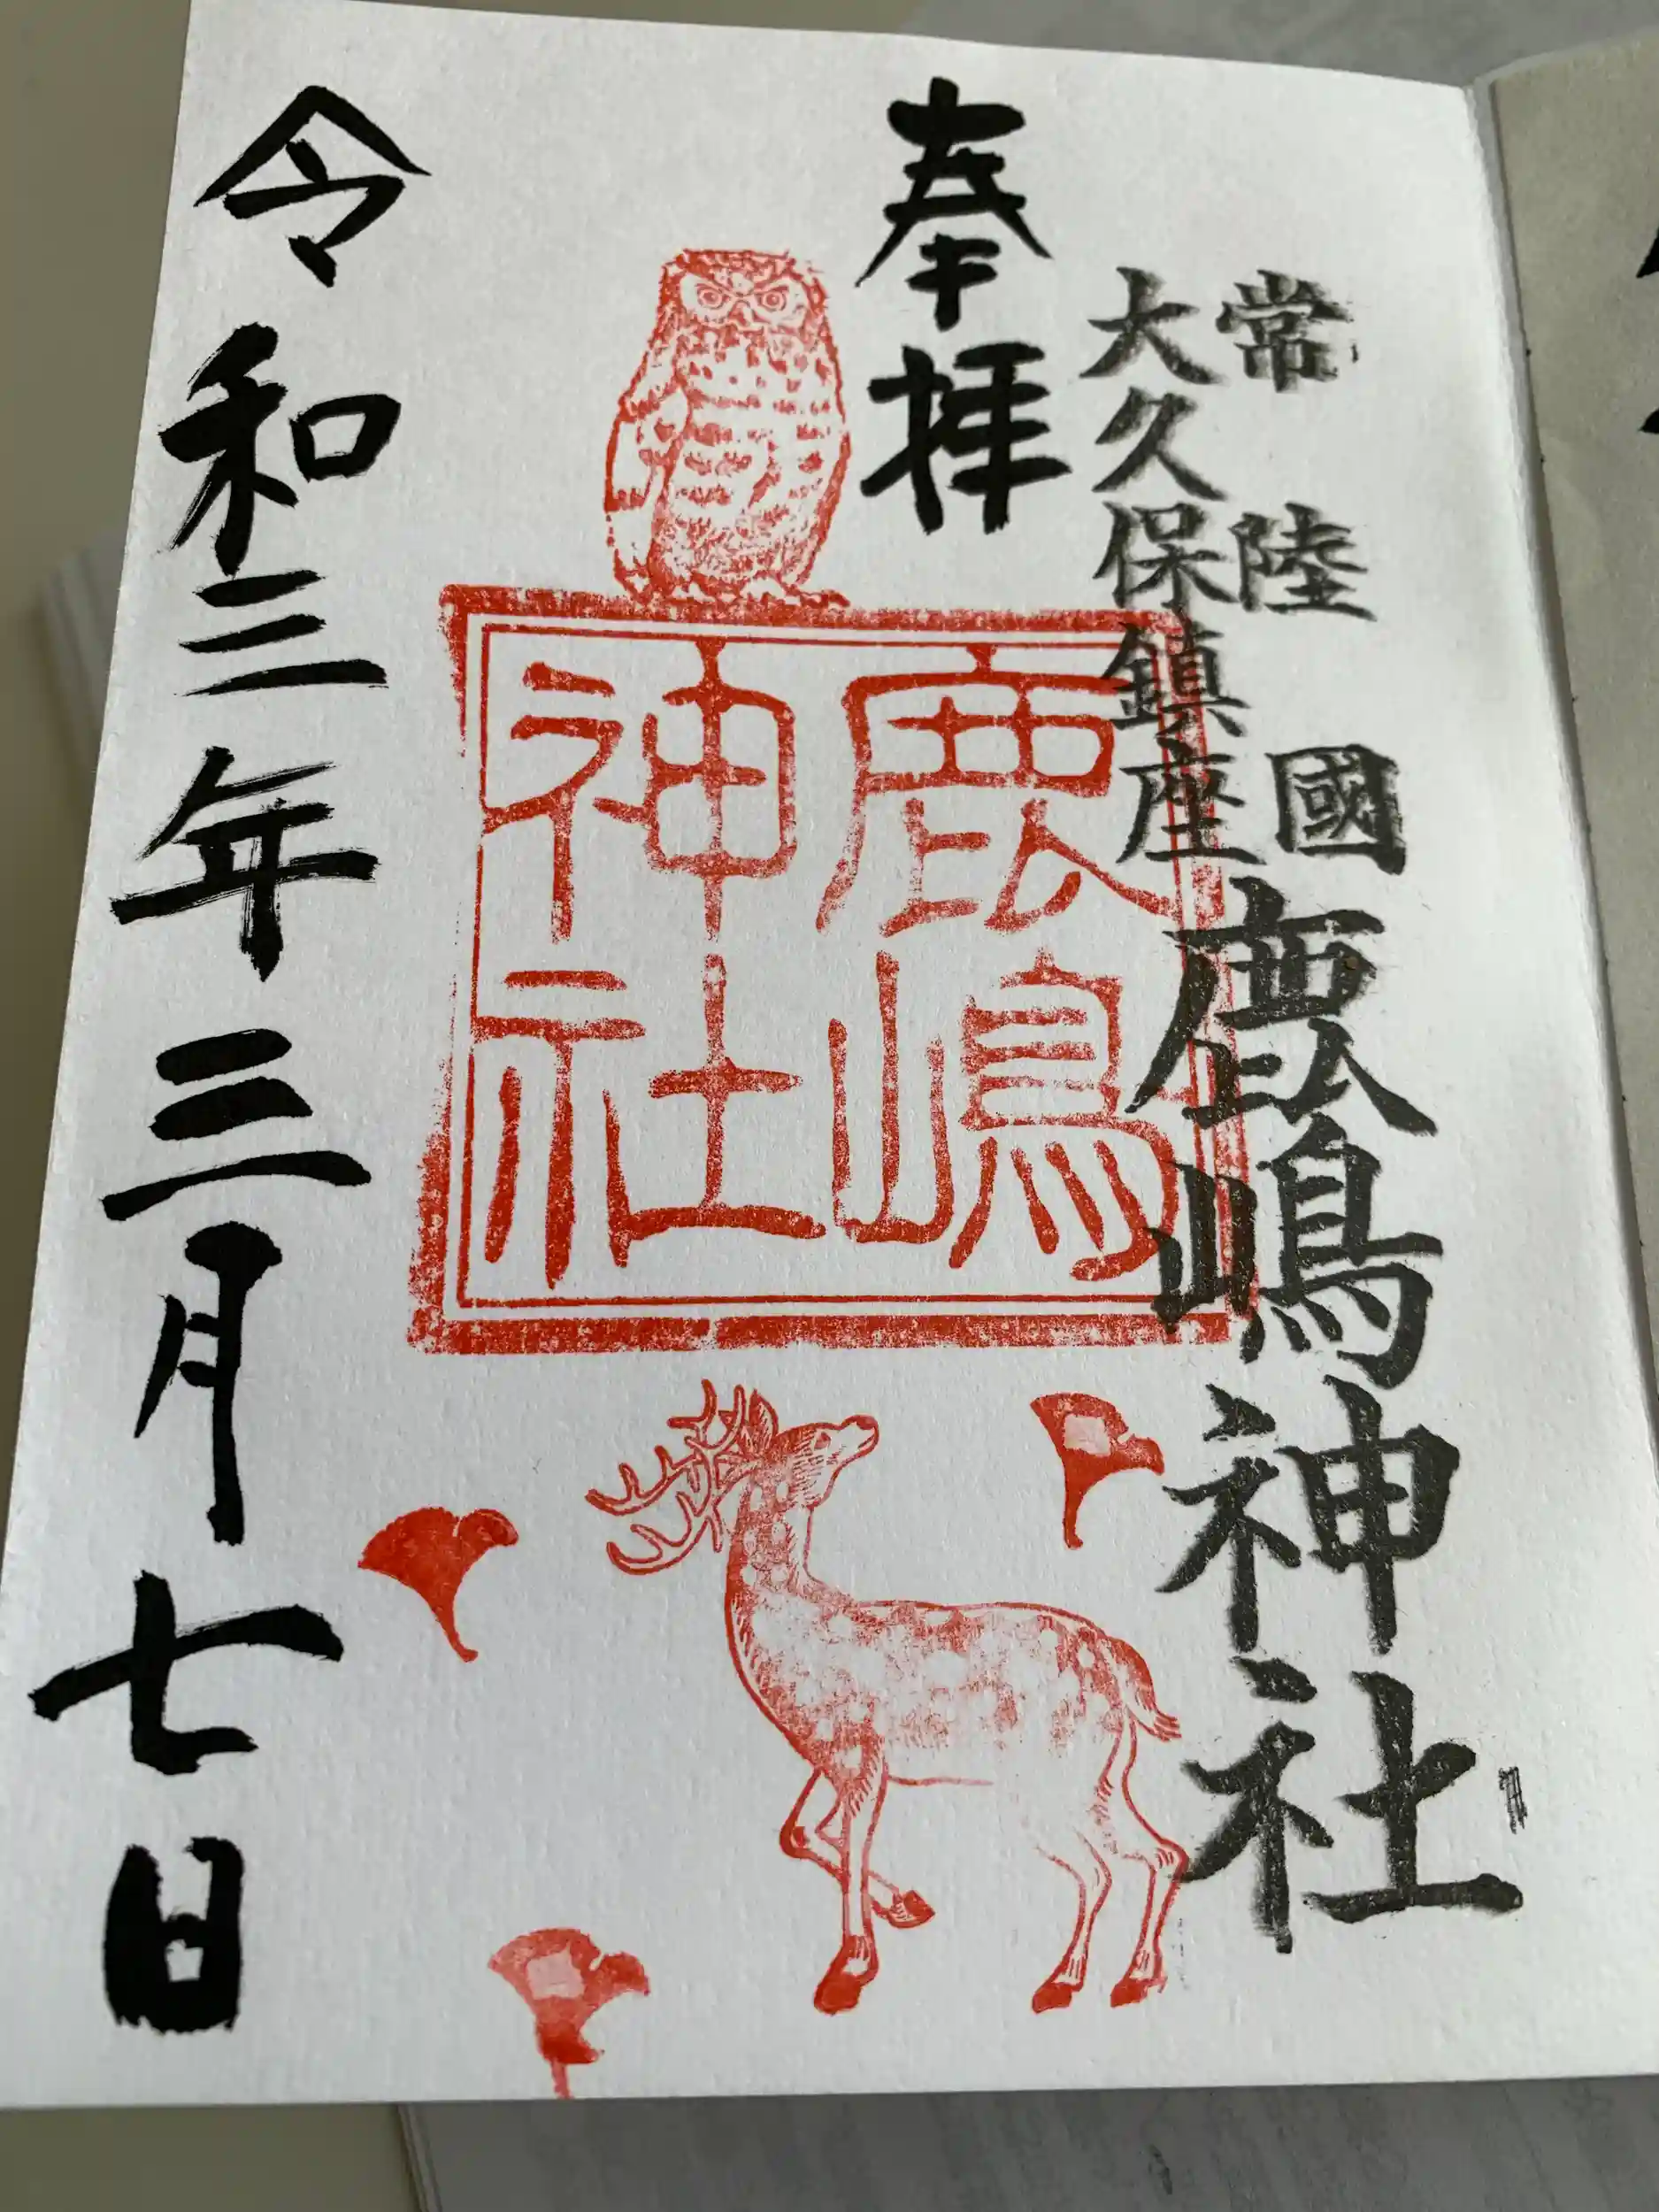 常陸國
大久保鎮座
鹿嶋神社
奉拝
鹿嶋
神社
令和三年三月七日